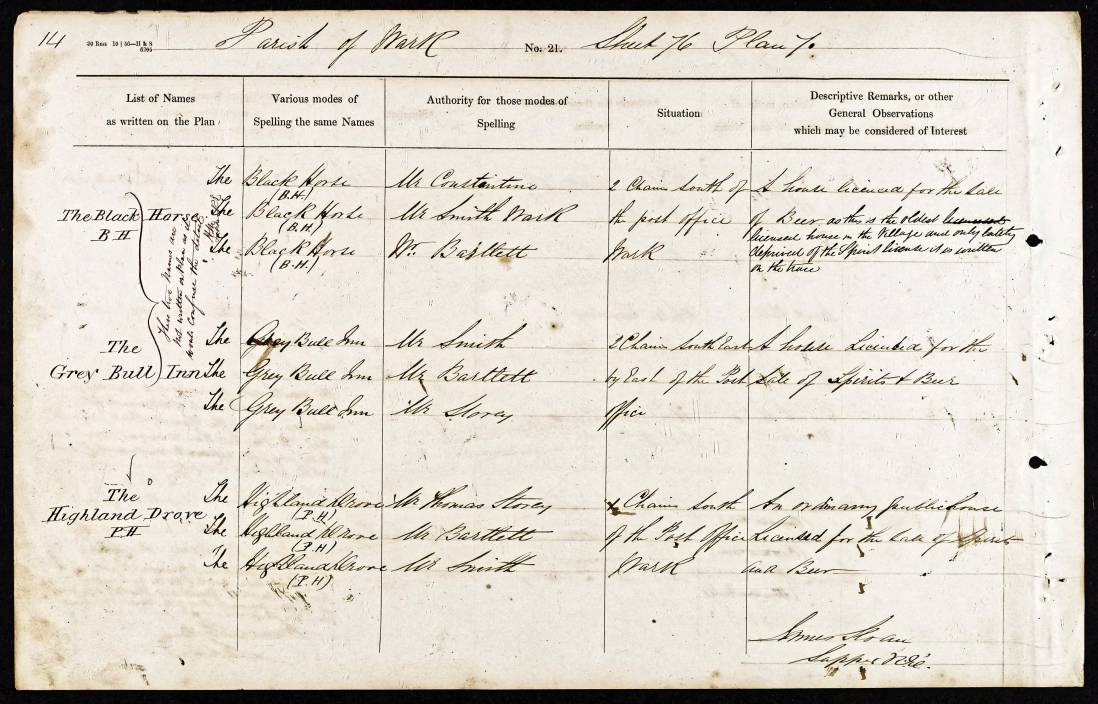 14
Parish of Wark
No. 21.
Sheet 76 Plan 7.
List of Names
as written on the Plan
Various modes of
Spelling the same Names
Authority for those modes of
Spelling
Situation
Descriptive Remarks, or other
General Observations
which may be considered of Interest
The Black Horse
B H
The Black Horse
(B.H.)
The Black Horse
(B.H.)
The Black Horse
(B.H.)
Mr Constantine
Mr Smith Wark
Wm. Bartlett
2 Chains South of
the post office
Wark
A house licenced for the sale
of Beer, as this is the oldest licensed
licensed house in the Village and only lately
deprived of the Spirit license it is written
on the trace
These two names are
not written on Plan as it
would confuse the detail.
The
Grey Bull Inn
The Grey Bull Inn
The Grey Bull Inn
The Grey Bull Inn
Mr Smith
Mr Bartlett
Mr Storey
2 Chains South East
by East of the Post
office
A house Licensed for the
Sale of Spirits & Beer
The
Highland Drove
P H
The Highland Drove
(P.H)
The Highland Drove
(P.H)
The Highland Drove
(P.H)
Mr Thomas Storey
Mr Bartlett
Mr Smith
Chains South
of the Post Office
Wark
An ordinary public house
Licensed for the sale of Spirits
and Beer
James Sloan
Sapper R.E.